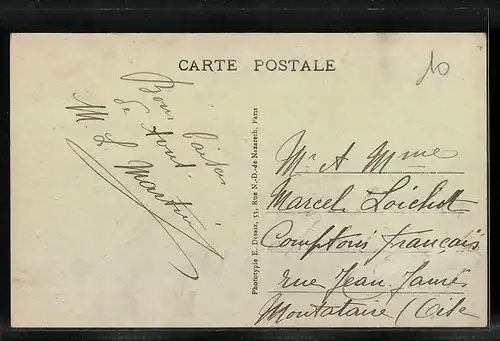 CARTE POSTALE
10
Bons baisers
de tout
M. L. Martin
Phototypie E. Desaix, 53, Rue N.-D.-de Nazareth, Paris
Mr & Mme
Marcel Loichot
Comptoirs français
rue Jean Jaurès
Montataire (Oise